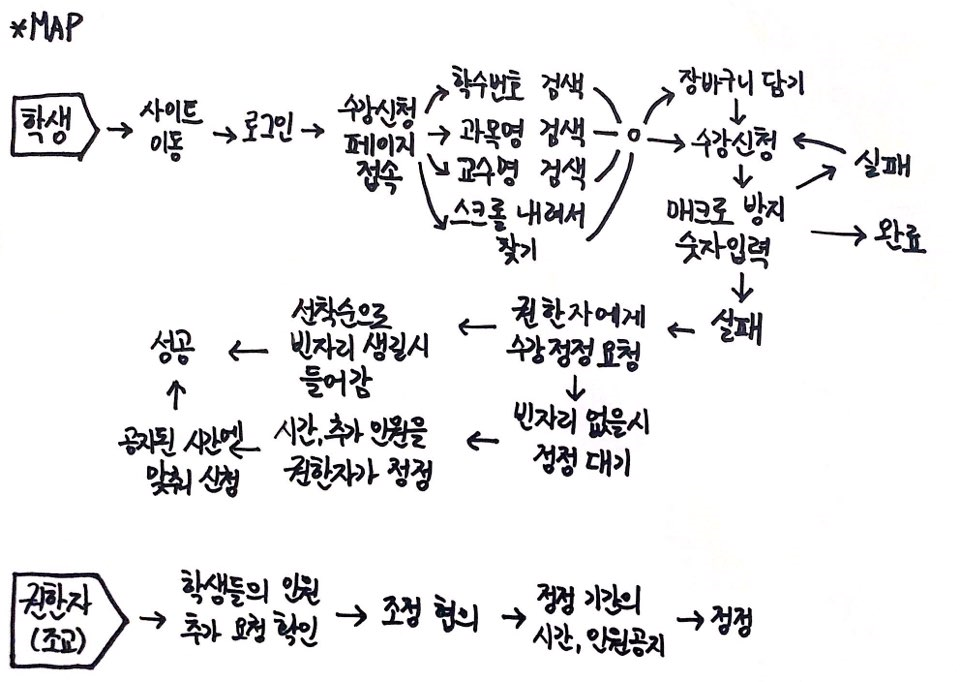 *MAP
학생
사이트
이동
로그인
수강신청
페이지
접속
학수번호 검색
과목명 검색
교수명 검색
스크롤 내려서
찾기
장바구니 담기
수강신청
실패
매크로 방지
숫자입력
완료
실패
권한자에게
수강정정 요청
선착순으로
빈자리 생길시
들어감
성공
빈자리 없을시
정정 대기
시간, 추가 인원을
권한자가 정정
공지된 시간에
맞춰 신청
권한자
(조교)
학생들의 인원
추가 요청 확인
조정 협의
정정 기간의
시간, 인원공지
정정